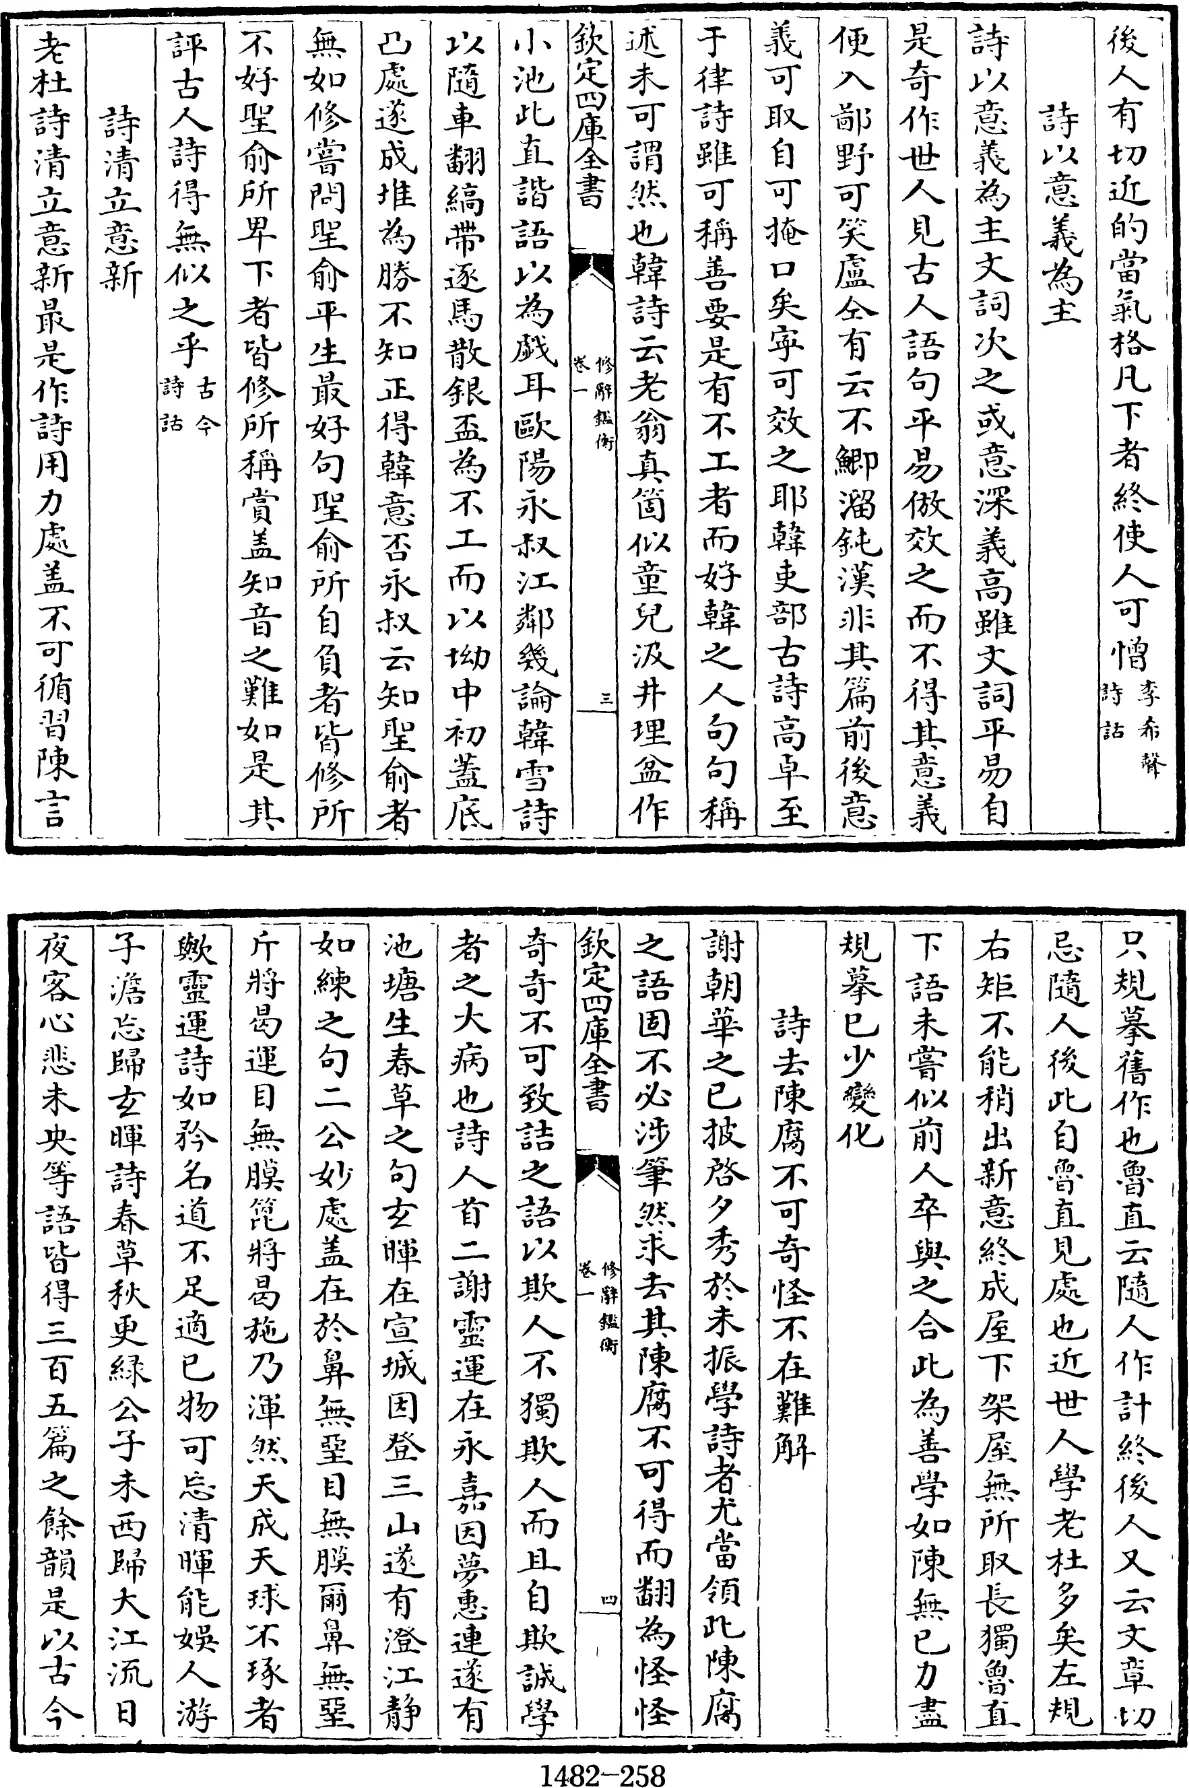 後人有切近的當氣格凡下者終使人可憎李希聲詩話
詩以意義為主
詩以意義為主文詞次之或意深義高雖文詞平易自
是奇作世人見古人語句平易倣效之而不得其意義
便入鄙野可笑盧仝有云不鯽溜鈍漢非其篇前後意
義可取自可掩口矣寜可效之耶韓吏部古詩高卓至
于律詩雖可稱善要是有不工者而好韓之人句句稱
述未可謂然也韓詩云老翁真箇似童兒汲井埋盆作
欽定四庫全書
修辭鑑衡
卷一
三
小池此直諧語以為戯耳歐陽永叔江鄰幾論韓雪詩
以隨車翻縞帶逐馬散銀盃為不工而以坳中初蓋底
凸處遂成堆為勝不知正得韓意否永叔云知聖俞者
無如修嘗問聖俞平生最好句聖俞所自負者皆修所
不好聖俞所卑下者皆修所稱賞盖知音之難如是其
評古人詩得無似之乎古今詩話
詩清立意新
老杜詩清立意新最是作詩用力處盖不可循習陳言
只規摹舊作也魯直云隨人作計終後人又云文章切
忌隨人後此自魯直見處也近世人學老杜多矣左規
右矩不能稍出新意終成屋下架屋無所取長獨魯直
下語未嘗似前人卒與之合此為善學如陳無已力盡
規摹已少變化
詩去陳腐不可奇怪不在難解
謝朝華之已披啓夕秀於未振學詩者尤當領此陳腐
之語固不必涉筆然求去其陳腐不可得而翻為怪怪
欽定四庫全書
修辭鑑衡
卷一
四
奇奇不可致詰之語以欺人不獨欺人而且自欺誠學
者之大病也詩人首二謝靈運在永嘉因夢惠連遂有
池塘生春草之句玄暉在宣城因登三山遂有澄江静
如練之句二公妙處盖在於鼻無堊目無膜爾鼻無堊
斤將曷運目無膜箆將曷施乃渾然天成天球不琢者
歟靈運詩如矜名道不足適已物可忘清暉能娛人游
子澹忘歸玄暉詩春草秋更緑公子未西歸大江流日
夜客心悲未央等語皆得三百五篇之餘韻是以古今
1482-258